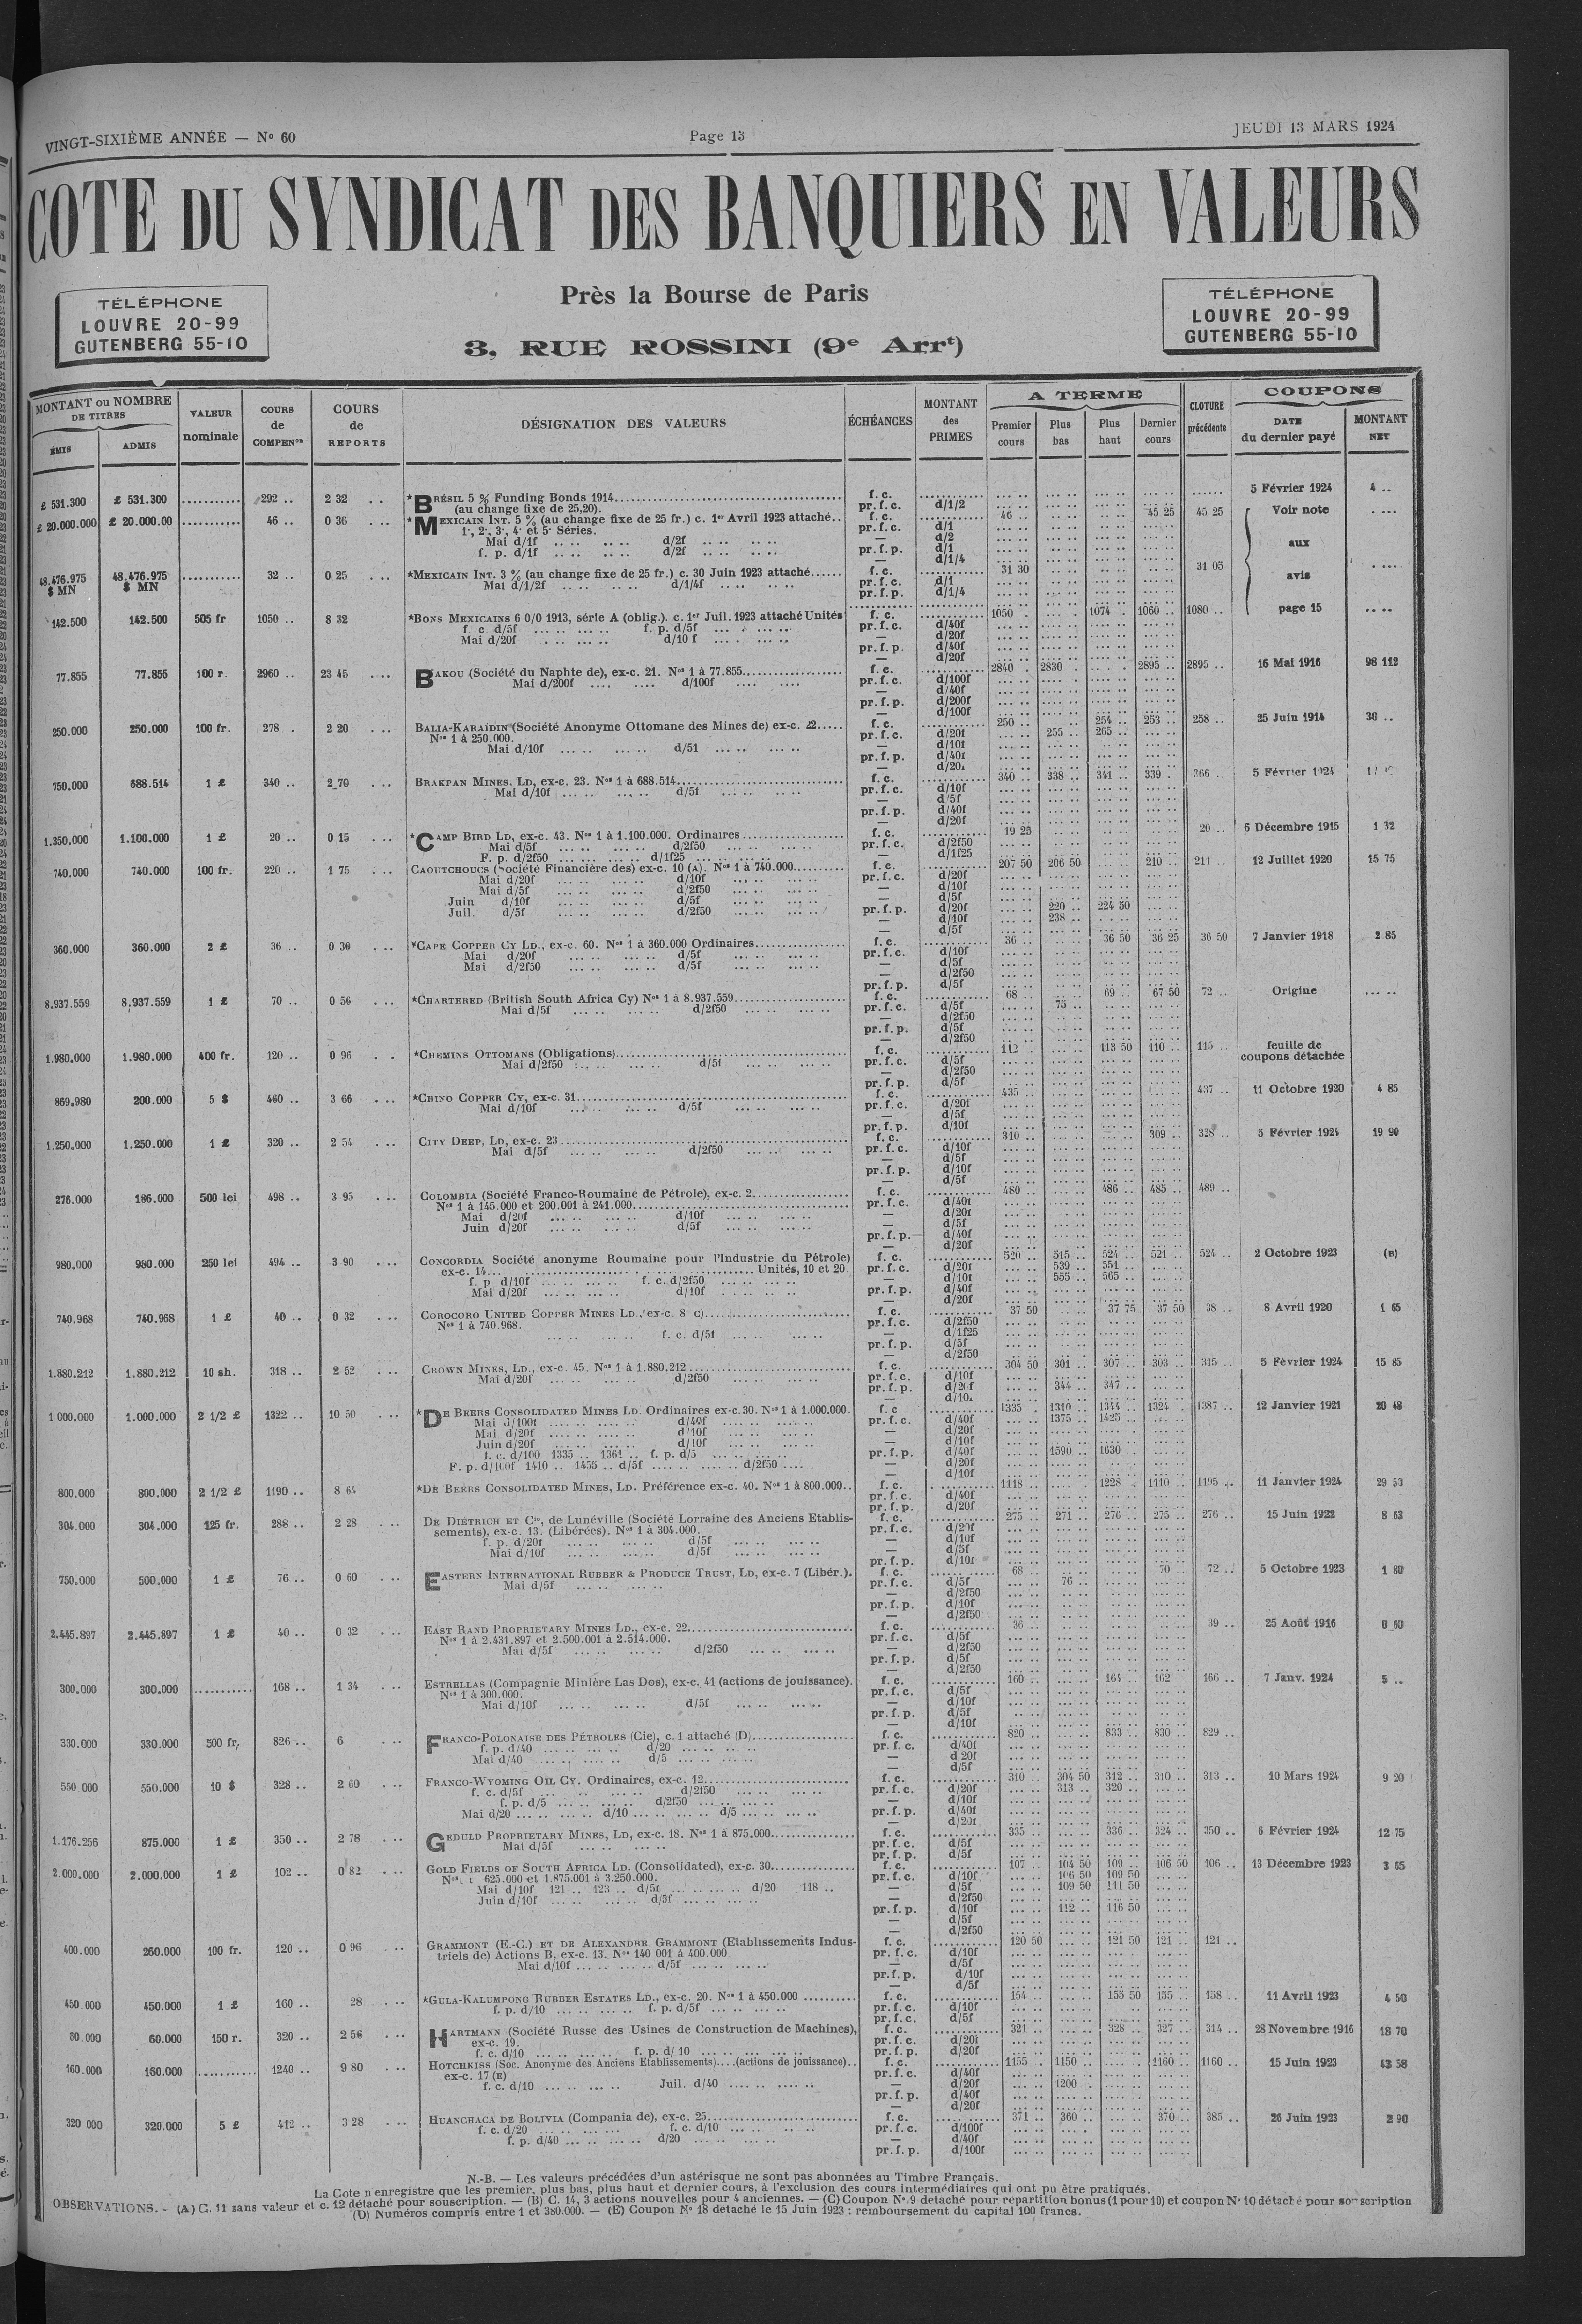 VINGT-SIXIÈME ANNÉE — No 60
Page 13
JEUDI 13 MARS 1924
COTE DU SYNDICAT DES BANQUIERS EN VALEURS
TÉLÉPHONE
LOUVRE 20-99
GUTENBERG 55-10
Près la Bourse de Paris
3, RUE ROSSINI (9e Arrt)
TÉLÉPHONE
LOUVRE 20-99
GUTENBERG 55-10
MONTANT ou NOMBRE DE TITRES
ÉMIS
ADMIS
VALEUR nominale
COURS de COMPENon
COURS de REPORTS
DÉSIGNATION DES VALEURS
ÉCHÉANCES
MONTANT des PRIMES
A TERME
Premier cours
Plus bas
Plus haut
Dernier cours
CLOTURE précédente
COUPONS
DATE du dernier payé
MONTANT NET
£ 531.300 £ 531.300 292 .. 2 32 *BRÉSIL 5 % Funding Bonds 1914 f. c. 5 Février 1924 4 ..
(au change fixe de 25,20). pr. f. c. d/1/2
£ 20.000.000 £ 20.000.00 46 .. 0 36 *MEXICAIN INT. 5 % (au change fixe de 25 fr.) c. 1er Avril 1923 attaché.. f. c. 46 .. 45 25 45 25 Voir note
1·, 2·, 3·, 4· et 5· Séries. pr. f. c. d/1
Mai d/1f d/2f — d/2
f. p. d/1f d/2f pr. f. p. d/1 aux
— d/1/4
48.476.975 $ MN 48.476.975 $ MN 32 .. 0 25 *MEXICAIN INT. 3 % (au change fixe de 25 fr.) c. 30 Juin 1923 attaché f. c. 31 30 31 05 avis
Mai d/1/2f d/1/4f pr. f. c. d/1
pr. f. p. d/1/4
142.500 142.500 505 fr 1050 .. 8 32 *BONS MEXICAINS 6 0/0 1913, série A (oblig.). c. 1er Juil. 1923 attaché Unités f. c. 1050 . 1074 . 1060 .. 1080 .. page 15
f. c. d/5f f. p. d/5f pr. f. c. d/40f
Mai d/20f d/10 f — d/20f
pr. f. p. d/40f
— d/20f
77.855 77.855 100 r. 2960 .. 23 45 BAKOU (Société du Naphte de), ex-c. 21. Nos 1 à 77.855 f. c. 2840 . 2830 2895 .. 2895 .. 16 Mai 1916 98 112
Mai d/200f d/100f pr. f. c. d/100f
— d/40f
pr. f. p. d/200f
— d/100f
250.000 250.000 100 fr. 278 . 2 20 BALIA-KARAÏDIN (Société Anonyme Ottomane des Mines de) ex-c. 22 f. c. 250 .. 254 .. 253 .. 258 .. 25 Juin 1914 30 ..
Nos 1 à 250.000. pr. f. c. d/20f 255 .. 265 ..
Mai d/10f d/5f — d/10f
pr. f. p. d/40f
— d/20f
750.000 688.514 1 £ 340 .. 2 70 BRAKPAN MINES, LD, ex-c. 23. Nos 1 à 688.514 f. c. 340 .. 338 .. 341 .. 339 . 366 . 5 Février 1924
Mai d/10f d/5f pr. f. c. d/10f
— d/5f
pr. f. p. d/40f
— d/20f
1.350.000 1.100.000 1 £ 20 .. 0 15 *CAMP BIRD LD, ex-c. 43. Nos 1 à 1.100.000. Ordinaires f. c. 19 25 20 .. 6 Décembre 1915 1 32
Mai d/5f d/2f50 pr. f. c. d/2f50
F. p. d/2f50 d/1f25 — d/1f25
740.000 740.000 100 fr. 220 .. 1 75 CAOUTCHOUCS (Société Financière des) ex-c. 10 (A). Nos 1 à 740.000 f. c. 207 50 206 50 210 .. 211 .. 12 Juillet 1920 15 75
Mai d/20f d/10f pr. f. c. d/20f
Mai d/5f d/2f50 — d/10f
Juin d/10f d/5f — d/5f
Juil. d/5f d/2f50 pr. f. p. d/20f 220 .. 224 50
— d/10f 238 ..
— d/5f
360.000 360.000 2 £ 36 .. 0 30 *CAPE COPPER CY LD., ex-c. 60. Nos 1 à 360.000 Ordinaires f. c. 36 .. 36 50 36 25 36 50 7 Janvier 1918 2 85
Mai d/20f d/5f pr. f. c. d/10f
Mai d/2f50 d/5f — d/5f
— d/2f50
pr. f. p. d/5f
8.937.559 8.937.559 1 £ 70 .. 0 56 *CHARTERED (British South Africa Cy) Nos 1 à 8.937.559 f. c. 68 .. 69 .. 67 50 72 .. Origine
Mai d/5f d/2f50 pr. f. c. d/5f 75 ..
— d/2f50
pr. f. p. d/5f
— d/2f50
1.980.000 1.980.000 400 fr. 120 .. 0 96 *CHEMINS OTTOMANS (Obligations) f. c. 112 . 113 50 110 .. 115 .. feuille de coupons détachée
Mai d/2f50 d/5f pr. f. c. d/5f
— d/2f50
pr. f. p. d/5f
869.980 200.000 5 $ 460 .. 3 66 *CHINO COPPER CY, ex-c. 31 f. c. 435 .. 437 .. 11 Octobre 1920 4 85
Mai d/10f d/5f pr. f. c. d/20f
— d/5f
pr. f. p. d/10f
1.250.000 1.250.000 1 £ 320 .. 2 54 CITY DEEP, LD, ex-c. 23 f. c. 310 .. 309 .. 328 .. 5 Février 1924 19 90
Mai d/5f d/2f50 pr. f. c. d/10f
— d/5f
pr. f. p. d/10f
— d/5f
276.000 186.000 500 lei 498 .. 3 95 COLOMBIA (Société Franco-Roumaine de Pétrole), ex-c. 2 f. c. 480 .. 486 .. 485 .. 489 ..
Nos 1 à 145.000 et 200.001 à 241.000 pr. f. c. d/40f
Mai d/20f d/10f — d/20f
Juin d/20f d/5f — d/5f
pr. f. p. d/40f
— d/20f
980.000 980.000 250 lei 494 .. 3 90 CONCORDIA Société anonyme Roumaine pour l'Industrie du Pétrole) f. c. 520 .. 515 .. 524 .. 521 .. 524 .. 2 Octobre 1923 (B)
ex-c. 14 Unités, 10 et 20 pr. f. c. d/20f 539 .. 551 ..
f. p d/10f f. c. d/2f50 — d/10f 555 .. 565 ..
Mai d/20f d/10f pr. f. p. d/40f
— d/20f
740.968 740.968 1 £ 40 .. 0 32 COROCORO UNITED COPPER MINES LD., ex-c. 8 C) f. c. 37 50 37 75 37 50 38 .. 8 Avril 1920 1 65
Nos 1 à 740.968. pr. f. c. d/2f50
f. c. d/5f — d/1f25
pr. f. p. d/5f
— d/2f50
1.880.212 1.880.212 10 sh. 318 .. 2 52 CROWN MINES, LD., ex-c. 45. Nos 1 à 1.880.212 f. c. 304 50 301 .. 307 .. 303 .. 315 .. 5 Février 1924 15 85
Mai d/20f d/2f50 pr. f. c. d/10f
pr. f. p. d/20f 344 .. 347 ..
— d/10.
1 000.000 1.000.000 2 1/2 £ 1322 .. 10 50 *DE BEERS CONSOLIDATED MINES LD. Ordinaires ex-c. 30. Nos 1 à 1.000.000. f. c 1335 . 1310 .. 1344 .. 1324 .. 1387 .. 12 Janvier 1921 20 48
Mai d/100f d/40f pr. f. c. d/40f 1375 .. 1425 ..
Mai d/20f d/10f — d/20f
Juin d/20f d/10f — d/10f
f. c. d/100 1335 .. 1361 .. f. p. d/5 pr. f. p. d/40f 1590 .. 1630 ..
F. p. d/100f 1410 .. 1455 .. d/5f d/2f50 — d/20f
— d/10f
800.000 800.000 2 1/2 £ 1190 .. 8 64 *DE BEERS CONSOLIDATED MINES, LD. Préférence ex-c. 40. Nos 1 à 800.000.. f. c. 1118 .. 1228 . 1110 .. 1195 .. 11 Janvier 1924 29 53
pr. f. c. d/40f
pr. f. p. d/20f
304.000 304.000 125 fr. 288 .. 2 28 DE DIÉTRICH ET Cie, de Lunéville (Société Lorraine des Anciens Etablis- f. c. 275 .. 271 .. 276 .. 275 .. 276 .. 15 Juin 1922 8 63
sements), ex-c. 13. (Libérées). Nos 1 à 304.000. pr. f. c. d/20f
f. p. d/20f d/5f — d/10f
Mai d/10f d/5f — d/5f
pr. f. p. d/10f
750.000 500.000 1 £ 76 .. 0 60 EASTERN INTERNATIONAL RUBBER & PRODUCE TRUST, LD, ex-c. 7 (Libér.). f. c. 68 .. 70 .. 72 .. 5 Octobre 1923 1 80
Mai d/5f pr. f. c. d/5f 76 ..
— d/2f50
pr. f. p. d/10f
— d/2f50
2.445.897 2.445.897 1 £ 40 .. 0 32 EAST RAND PROPRIETARY MINES LD., ex-c. 22 f. c. 36 .. 39 .. 25 Août 1916 0 60
Nos 1 à 2.431.897 et 2.500.001 à 2.514.000. pr. f. c. d/5f
Mai d/5f d/2f50 — d/2f50
pr. f. p. d/5f
— d/2f50
300.000 300.000 168 .. 1 34 ESTRELLAS (Compagnie Minière Las Dos), ex-c. 41 (actions de jouissance). f. c. 160 .. 164 .. 162 166 .. 7 Janv. 1924 5 ..
Nos 1 à 300.000. pr. f. c. d/5f
Mai d/10f d/5f — d/10f
pr. f. p. d/5f
— d/10f
330.000 330.000 500 fr, 826 .. 6 FRANCO-POLONAISE DES PÉTROLES (Cie), c. 1 attaché (D) f. c. 820 .. 833 .. 830 .. 829 ..
f. p. d/40 d/20 pr. f. c. d/40f
Mai d/40 d/5 — d 20f
— d/5f
550 000 550.000 10 $ 328 .. 2 60 FRANCO-WYOMING OIL CY. Ordinaires, ex-c. 12 f. c. 310 .. 304 50 312 .. 310 .. 313 .. 10 Mars 1924 9 20
f. c. d/5f d/2f50 pr. f. c. d/20f 313 .. 320 ..
f. p. d/5 d/2f50 — d/10f
Mai d/20 d/10 d/5 pr. f. p. d/40f
— d/20f
1.176.256 875.000 1 £ 350 .. 2 78 GEDULD PROPRIETARY MINES, LD, ex-c. 18. Nos 1 à 875.000 f. c. 335 .. 336 .. 324 .. 350 .. 6 Février 1924 12 75
Mai d/5f pr. f. c. d/5f
pr. f. p. d/5f
2.000.000 2.000.000 1 £ 102 .. 0 82 GOLD FIELDS OF SOUTH AFRICA LD. (Consolidated), ex-c. 30 f. c. 107 .. 104 50 109 .. 106 50 106 .. 13 Décembre 1923 3 65
Nos. 1 625.000 et 1.875.001 à 3.250.000. pr. f. c. d/10f 106 50 109 50
Mai d/10f 121 .. 123 .. d/5f d/20 118 .. — d/5f 109 50 111 50
Juin d/10f d/5f — d/2f50
pr. f. p. d/10f 112 .. 116 50
— d/5f
— d/2f50
400.000 260.000 100 fr. 120 .. 0 96 GRAMMONT (E.-C.) ET DE ALEXANDRE GRAMMONT (Etablissements Indus- f. c. 120 50 121 50 121 .. 121 ..
triels de) Actions B, ex-c. 13. Nos 140 001 à 400.000 pr. f. c. d/10f
Mai d/10f d/5f — d/5f
pr. f. p. d/10f
— d/5f
450 000 450.000 1 £ 160 .. 28 *GULA-KALUMPONG RUBBER ESTATES LD., ex-c. 20. Nos 1 à 450.000 f. c. 154 .. 155 50 155 .. 158 .. 11 Avril 1923 4 50
f. p. d/10 f. p. d/5f pr. f. c. d/10f
pr. f. c. d/5f
60.000 60.000 150 r. 320 .. 2 56 HARTMANN (Société Russe des Usines de Construction de Machines), f. c. 321 .. 328 .. 327 .. 314 .. 28 Novembre 1916 18 70
ex-c. 19. pr. f. c. d/20f
f. c. d/10 f. p. d/ 10 pr. f. p. d/20f
160.000 160.000 1240 .. 9 80 HOTCHKISS (Soc. Anonyme des Anciens Etablissements)....(actions de jouissance).. f. c. 1155 .. 1150 .. 1160 .. 1160 .. 15 Juin 1923 43 58
ex-c. 17 (E) pr. f. c. d/40f
f. c. d/10 Juil. d/40 — d/20f 1200 .
pr. f. p. d/40f
— d/20f
320 000 320.000 5 £ 412 .. 3 28 HUANCHACA DE BOLIVIA (Compania de), ex-c. 25 f. c. 371 .. 360 .. 370 .. 385 .. 26 Juin 1923 2 90
f. c. d/20 f. c. d/10 pr. f. c. d/100f
f. p. d/40 d/20 — d/40f
pr. f. p. d/100f
N.-B. — Les valeurs précédées d'un astérisque ne sont pas abonnées au Timbre Français.
La Cote n enregistre que les premier, plus bas, plus haut et dernier cours, à l'exclusion des cours intermédiaires qui ont pu être pratiqués.
OBSERVATIONS. - (A) C. 11 sans valeur et c. 12 détaché pour souscription. — (B) C. 14, 3 actions nouvelles pour 4 anciennes. — (C) Coupon No 9 detaché pour repartition bonus (1 pour 10) et coupon No 10 détaché pour souscription
(D) Numéros compris entre 1 et 380.000. — (E) Coupon No 18 detaché le 15 Juin 1923 : remboursement du capital 100 francs.